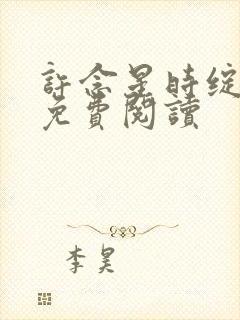 許念星時綻
免費閱讀
李昊